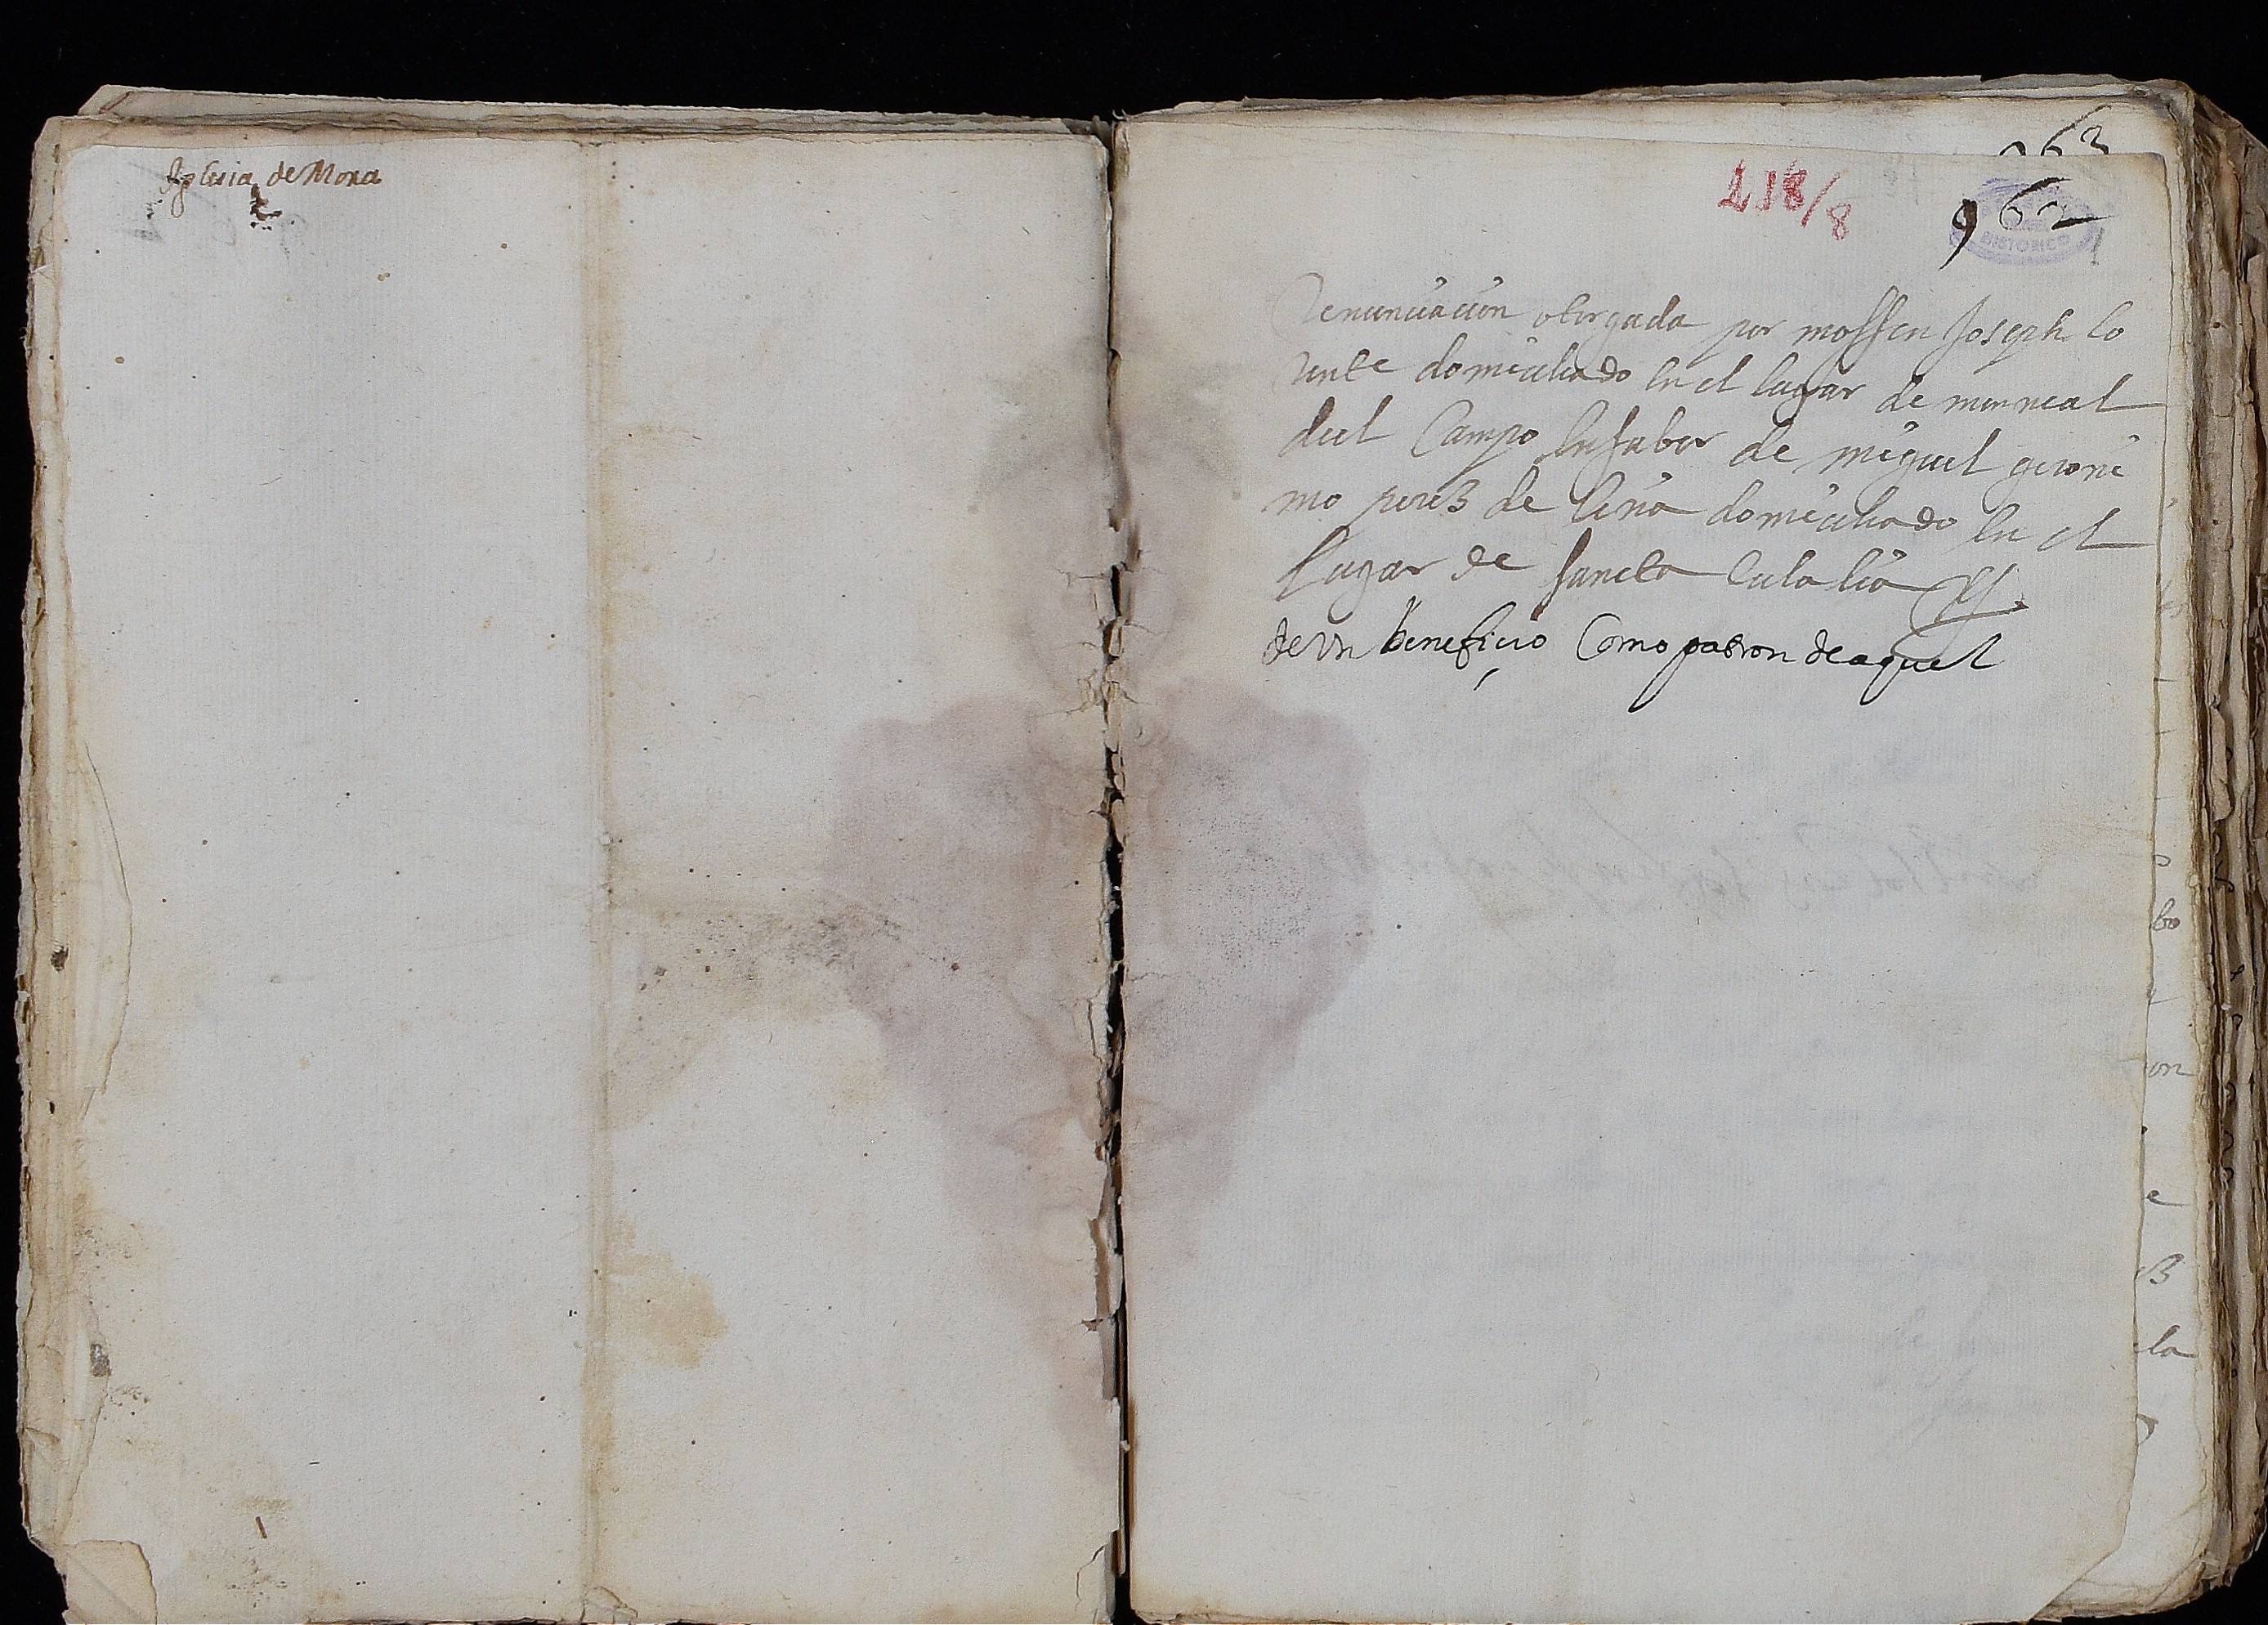 Iglesia de Mora
963
218/8
962
HISTORICO
Renunciacion otorgada por mossen Joseph lo
rente domiciliado en el lugar de monrreal
del Campo en fabor de miguel geroni
mo perez de liria domiciliado en el
lugar de sancta eulalia
de vn beneficio Como patron de aquel
bo
on
e
la